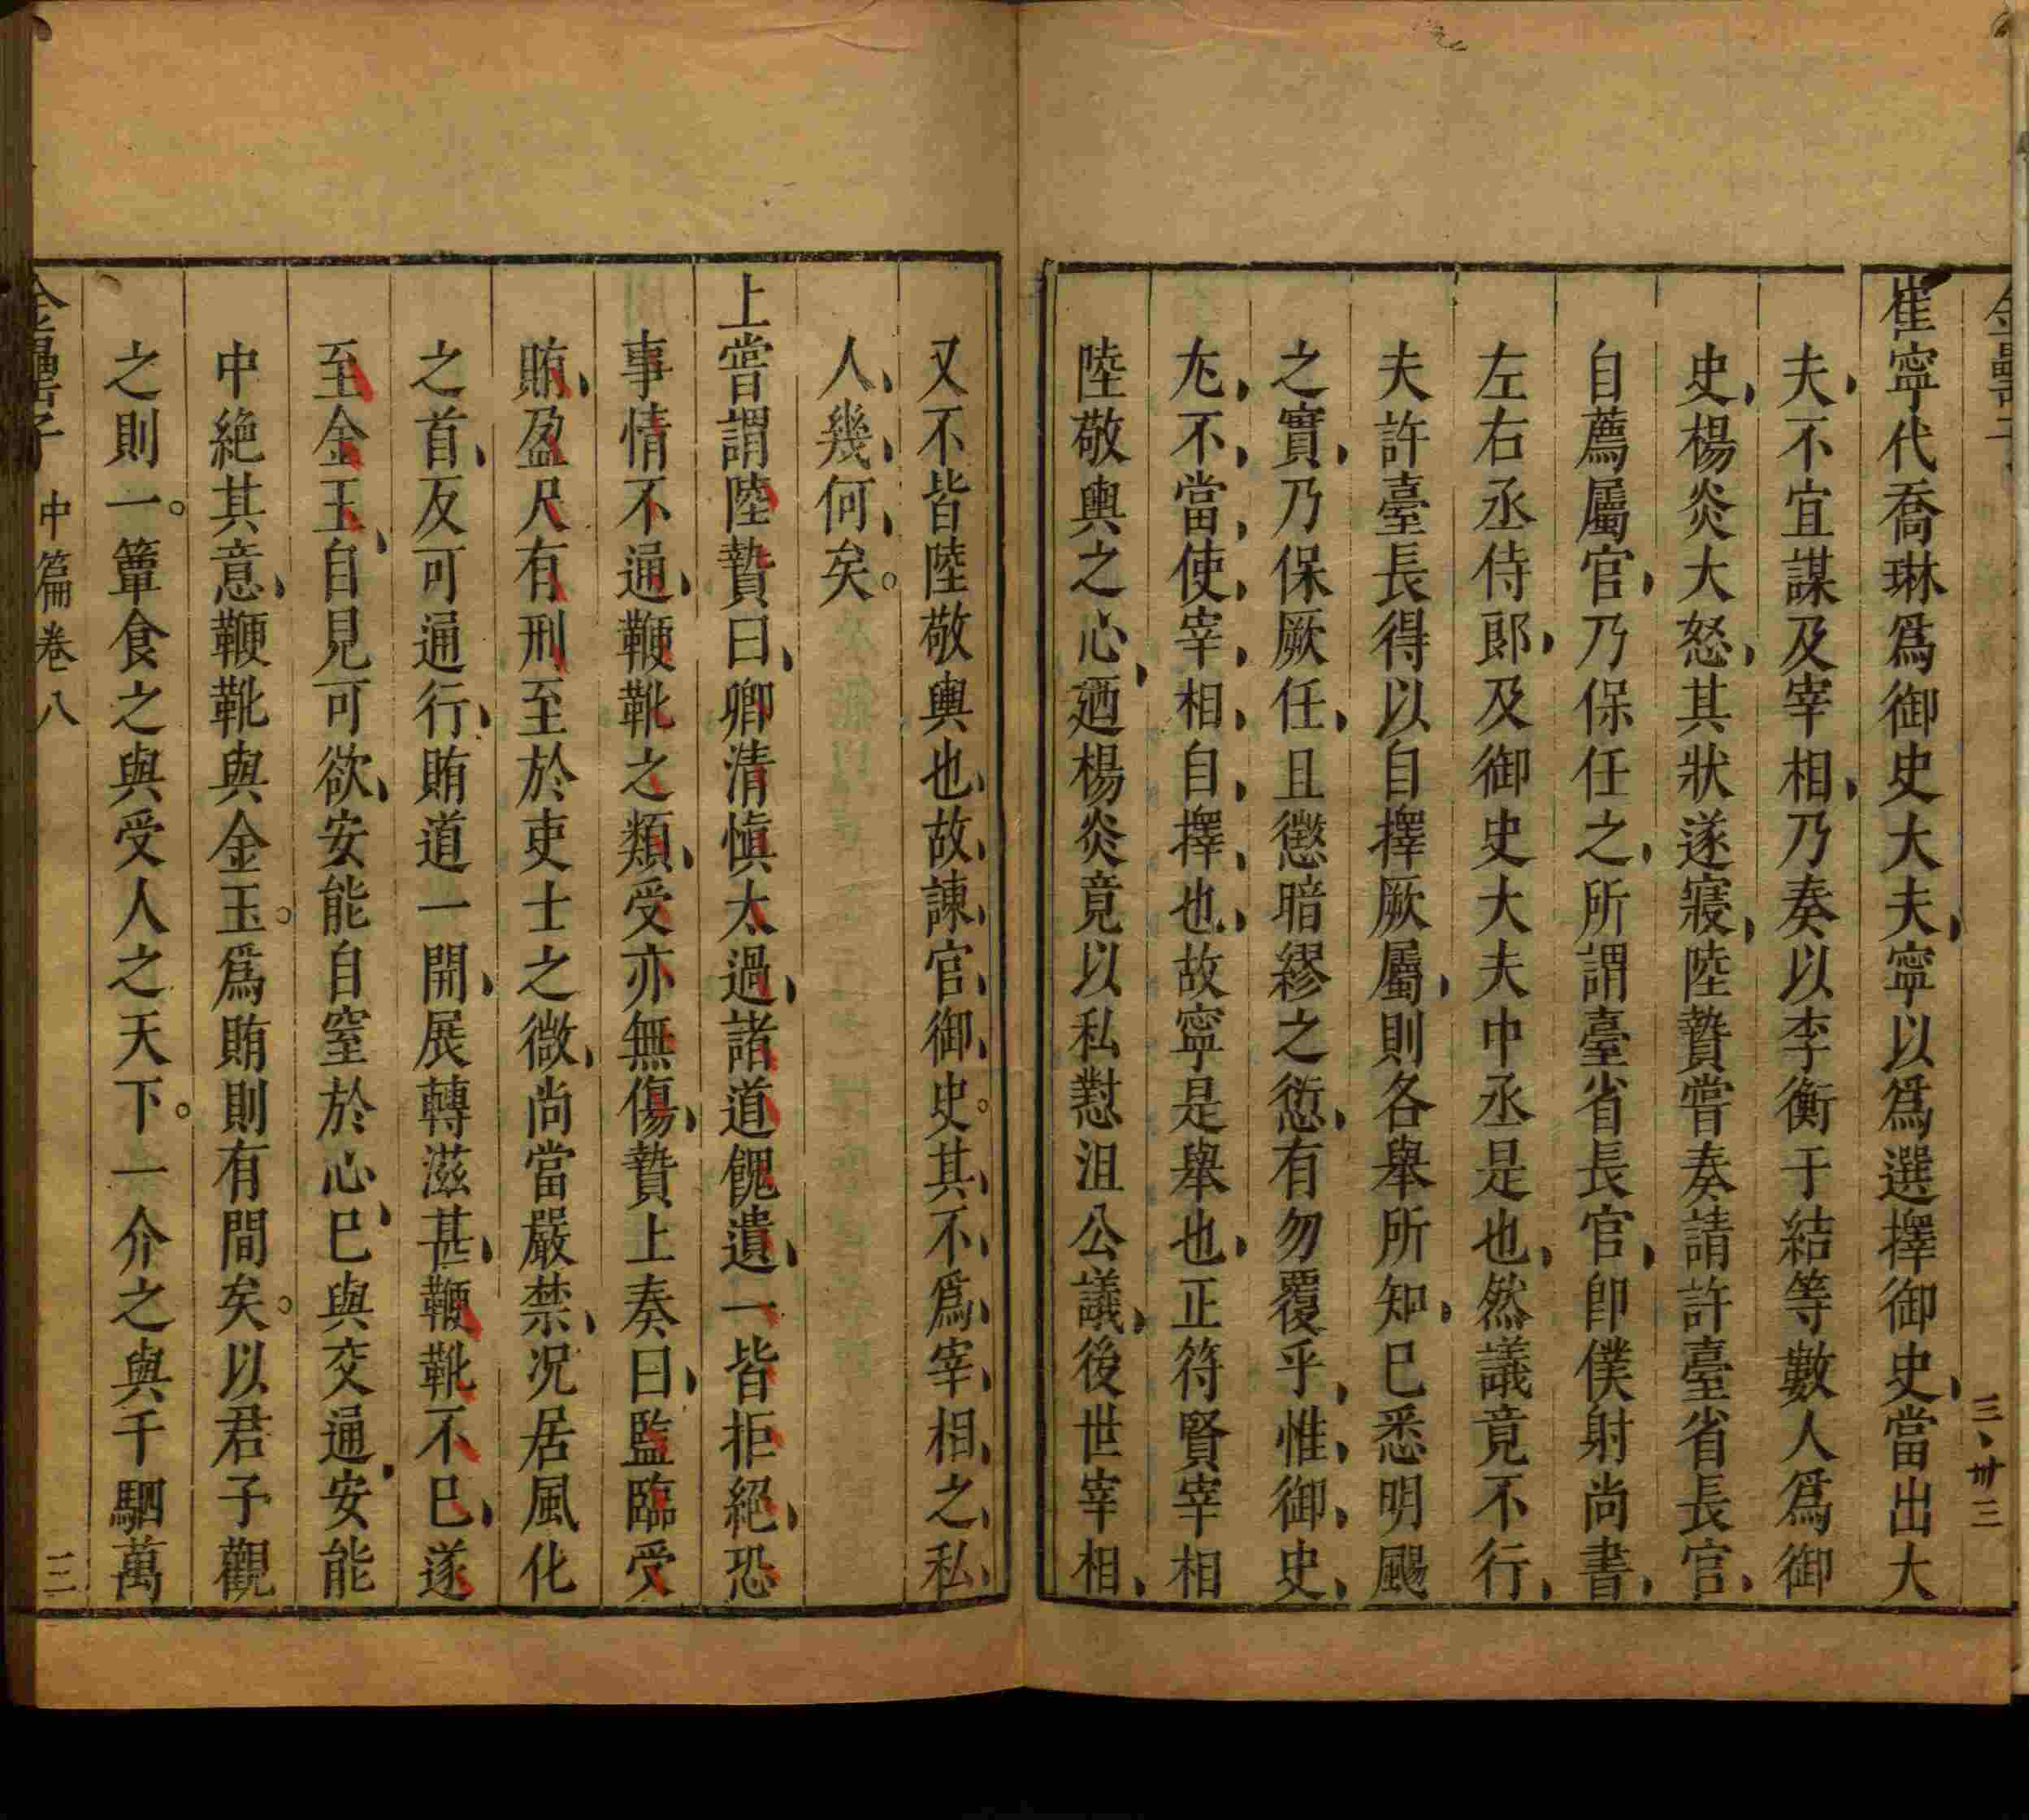 三、卅三
崔寧代喬琳爲御史大夫、寧以爲選擇御史、當出大
夫、不宜謀及宰相、乃奏以李衡于結等數人爲御
史、楊炎大怒、其狀遂寢、陸贄嘗奏請許臺省長官、
自薦屬官、乃保任之、所謂臺省長官、卽僕射尚書、
左右丞侍郎、及御史大夫中丞是也、然議竟不行、
夫許臺長得以自擇厥屬、則各舉所知、已悉明颺
之實、乃保厥任、且懲暗繆之愆、有勿覆乎、惟、御、史、
尤、不、當、使、宰、相、自、擇、也、故寧是舉也、正符賢宰相
陸敬輿之心、廼楊炎竟以私懟沮公議、後世宰相、
又不皆陸敬輿也、故、諫、官、御、史。其、不、爲、宰、相、之、私、
人、幾、何、矣。
上嘗謂陸贄曰、卿清愼太過、諸道餽遺、一皆拒絕、恐
事情不通、鞭靴之類、受亦無傷、贄上奏曰、監臨受
賄、盈尺有刑、至於吏士之微、尚當嚴禁、况居風化
之首、反可通行、賄道一開、展轉滋甚、鞭靴不已、遂
至金玉、自見可欲、安能自窒於心、已與交通、安能
中絕其意、鞭靴與金玉。爲賄則有間矣。以君子觀
之則一。簞食之與受人之天下。一介之與千駟萬
金罍子 中篇卷八 三